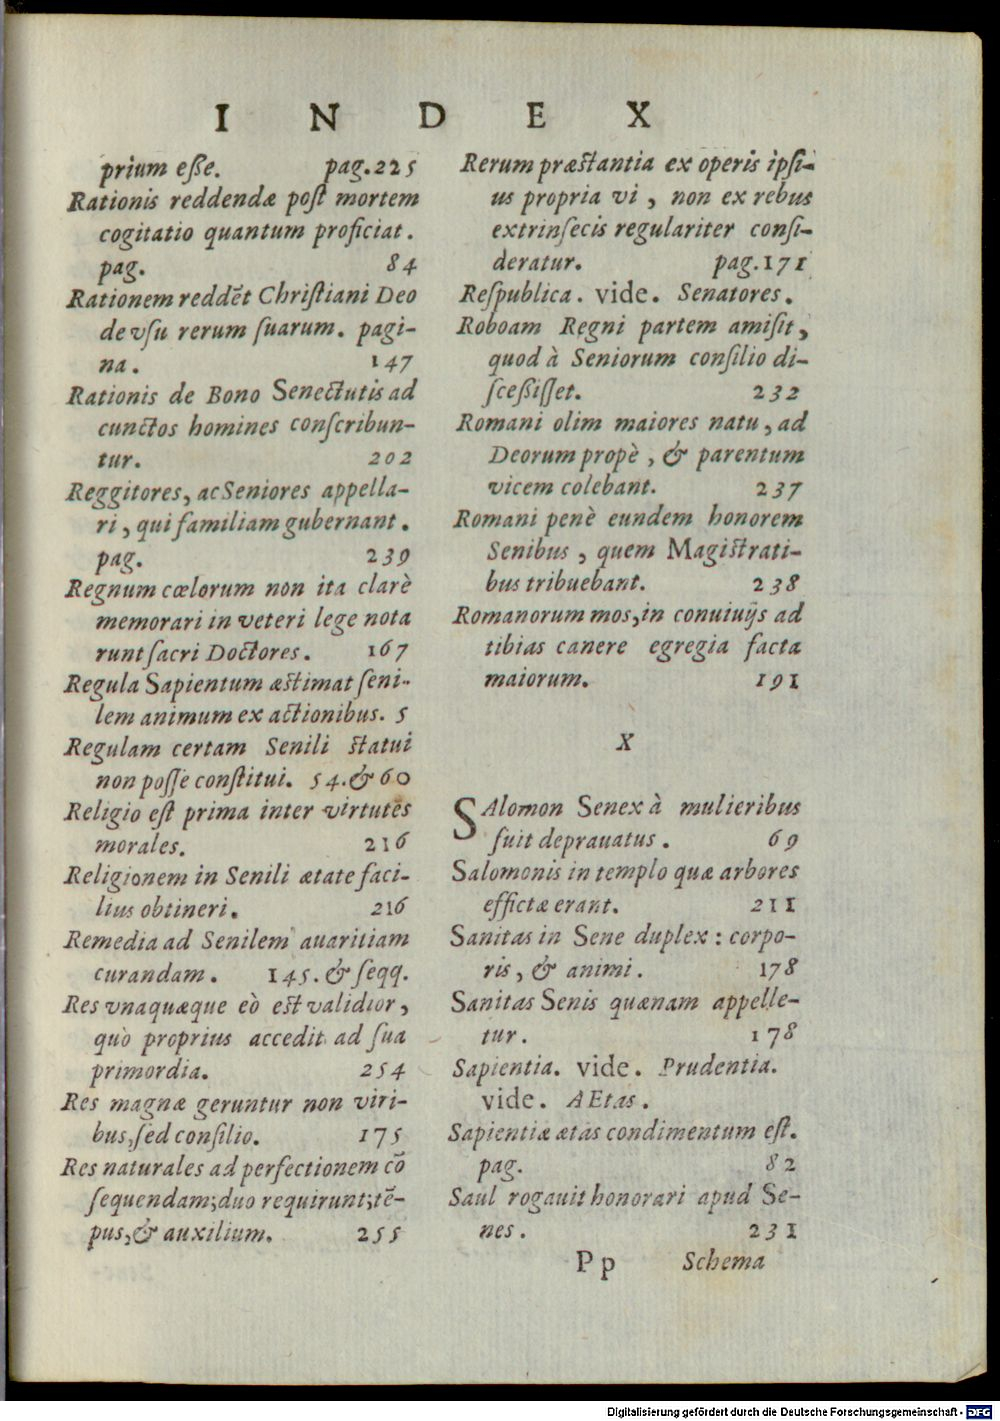 INDEX
prium eſſe. pag. 225
Rationis reddendæ poſt mortem
cogitatio quantum proficiat.
pag. 84
Rationem reddẽt Chriſtiani Deo
de vſu rerum ſuarum. pagi-
na. 147
Rationis de Bono Senectutis ad
cunctos homines conſcribun-
tur. 202
Reggitores, ac Seniores appella-
ri, qui familiam gubernant.
pag. 239
Regnum cœlorum non ita clarè
memorari in veteri lege nota
runt ſacri Doctores. 167
Regula Sapientum æſtimat ſeni-
lem animum ex actionibus. 5
Regulam certam Senili ſtatui
non poſſe conſtitui. 54. & 60
Religio eſt prima inter virtutes
morales. 216
Religionem in Senili ætate faci-
lius obtineri. 216
Remedia ad Senilem auaritiam
curandam. 145. & ſeqq.
Res vnaquæque eò eſt validior,
quò proprius accedit ad ſua
primordia. 254
Res magnæ geruntur non viri-
bus, ſed conſilio. 175
Res naturales ad perfectionem cõ
ſequendam; duo requirunt; tẽ-
pus, & auxilium. 255
Rerum præſtantia ex operis ipſi-
us propria vi, non ex rebus
extrinſecis regulariter conſi-
deratur. pag. 171
Reſpublica. vide. Senatores.
Roboam Regni partem amiſit,
quod à Seniorum conſilio di-
ſceſſiſſet. 232
Romani olim maiores natu, ad
Deorum propè, & parentum
vicem colebant. 237
Romani penè eundem honorem
Senibus, quem Magiſtrati-
bus tribuebant. 238
Romanorum mos, in conuiuijs ad
tibias canere egregia facta
maiorum. 191
X
SAlomon Senex à mulieribus
fuit deprauatus. 69
Salomonis in templo quæ arbores
effictæ erant. 211
Sanitas in Sene duplex: corpo-
ris, & animi. 178
Sanitas Senis quænam appelle-
tur. 178
Sapientia. vide. Prudentia.
vide. AEtas.
Sapientiæ ætas condimentum eſt.
pag. 82
Saul rogauit honorari apud Se-
nes. 231
Pp Schema
Digitalisierung gefördert durch die Deutsche Forschungsgemeinschaft - DFG